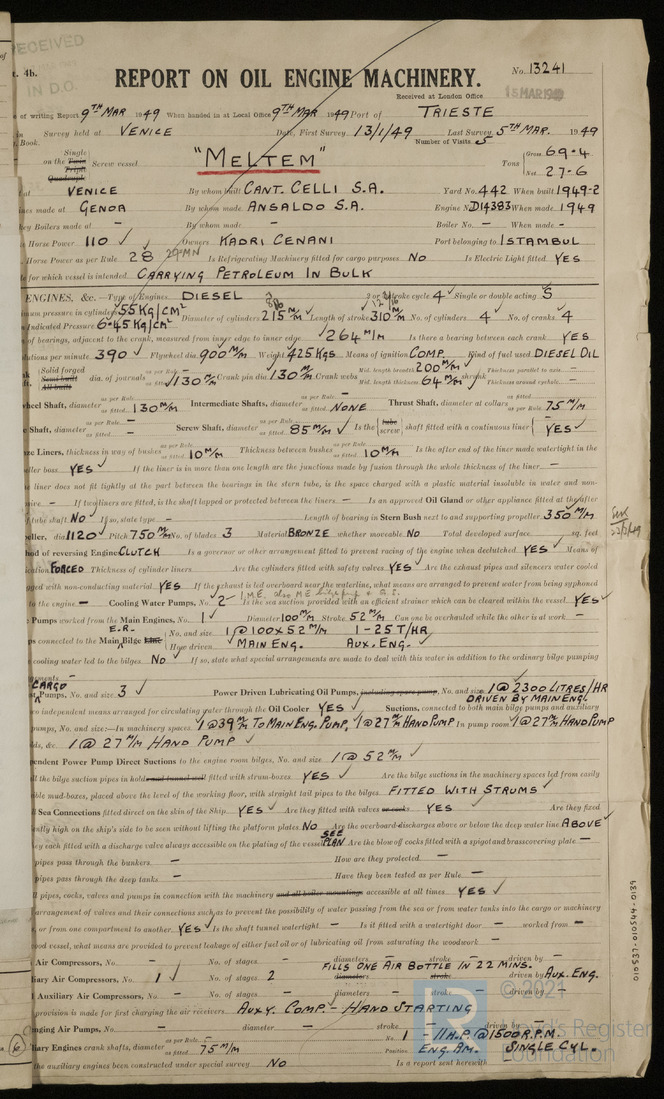 RECEIVED
IN D.O.
t. 4b.
REPORT ON OIL ENGINE MACHINERY.
No. 13241
Received at London Office 15 MAR 1949
e of writing Report 9TH MAR 1949 When handed in at Local Office 9TH MAR 1949 Port of TRIESTE
in Survey held at VENICE Date, First Survey 13/1/49 Last Survey 5TH MAR. 1949
Book. Number of Visits 5
on the Single Twin Triple Quadruple Screw vessel "MELTEM" Tons Gross 69.4 Net 27.6
at VENICE By whom built CANT. CELLI S.A. Yard No. 442 When built 1949-2
nes made at GENOA By whom made ANSALDO S.A. Engine No. D14383 When made 1949
key Boilers made at - By whom made - Boiler No. - When made -
Horse Power 110 Owners KADRI CENANI Port belonging to ISTAMBUL
Horse Power as per Rule 28 29 MN Is Refrigerating Machinery fitted for cargo purposes NO Is Electric Light fitted YES
de for which vessel is intended CARRYING PETROLEUM IN BULK
ENGINES, &c. Type of Engines DIESEL 2 or 4 stroke cycle 4 Single or double acting S
mum pressure in cylinders 55 Kg/cm² Diameter of cylinders 215 m/m Length of stroke 310 m/m No. of cylinders 4 No. of cranks 4
Indicated Pressure 6.45 Kg/cm²
of bearings, adjacent to the crank, measured from inner edge to inner edge 264 m/m Is there a bearing between each crank YES
lutions per minute 390 Flywheel dia. 900 m/m Weight 425 Kgs Means of ignition COMP. Kind of fuel used DIESEL OIL
Solid forged Semi built All built dia. of journals as per Rule - as fitted 130 m/m Crank pin dia. 130 m/m Crank webs Mid. length breadth 200 m/m Mid. length thickness 64 m/m shrunk Thickness parallel to axis - Thickness around eyehole -
wheel Shaft, diameter as per Rule as fitted 130 m/m Intermediate Shafts, diameter as per Rule as fitted NONE Thrust Shaft, diameter at collars as fitted 75 m/m
e Shaft, diameter as per Rule - as fitted - Screw Shaft, diameter as per Rule - as fitted 85 m/m Is the tube screw shaft fitted with a continuous liner YES
ze Liners, thickness in way of bushes as per Rule as fitted 10 m/m Thickness between bushes as per Rule as fitted 10 m/m Is the after end of the liner made watertight in the
eller boss YES If the liner is in more than one length are the junctions made by fusion through the whole thickness of the liner -
e liner does not fit tightly at the part between the bearings in the stern tube, is the space charged with a plastic material insoluble in water and non-
sive - If two liners are fitted, is the shaft lapped or protected between the liners - Is an approved Oil Gland or other appliance fitted at the after
f tube shaft NO If so, state type - Length of bearing in Stern Bush next to and supporting propeller 350 m/m
eller, dia 1120 Pitch 750 m/m No. of blades 3 Material BRONZE whether moveable NO Total developed surface sq. feet
hod of reversing Engine CLUTCH Is a governor or other arrangement fitted to prevent racing of the engine when declutched YES Means of
ication FORCED Thickness of cylinder liners Are the cylinders fitted with safety valves YES Are the exhaust pipes and silencers water cooled
ged with non-conducting material YES If the exhaust is led overboard near the waterline, what means are arranged to prevent water from being syphoned
to the engine - Cooling Water Pumps, No. 2 1 M.E. also M.E. bilge pump & G.S. Is the sea suction provided with an efficient strainer which can be cleared within the vessel YES
Pumps worked from the Main Engines, No. 1 Diameter 100 m/m Stroke 52 m/m Can one be overhauled while the other is at work -
ps connected to the Main Bilge Line E.R. No. and size 1 @ 100 x 52 m/m 1 - 25 T/HR
How driven MAIN ENG. AUX. ENG.
cooling water led to the bilges NO If so, state what special arrangements are made to deal with this water in addition to the ordinary bilge pumping
gements -
CARGO st Pumps, No. and size 3 Power Driven Lubricating Oil Pumps, including spare pump, No. and size 1 @ 2300 LITRES/HR DRIVEN BY MAIN ENG.
wn independent means arranged for circulating water through the Oil Cooler YES Suctions, connected to both main bilge pumps and auxiliary
pumps, No. and size:—In machinery spaces 1 @ 39 m/m TO MAIN ENG. PUMP, 1 @ 27 m/m HAND PUMP In pump room 1 @ 27 m/m HAND PUMP
ds, &c. 1 @ 27 m/m HAND PUMP
pendent Power Pump Direct Suctions to the engine room bilges, No. and size 1 @ 52 m/m
ll the bilge suction pipes in holds and tunnel well fitted with strum-boxes YES Are the bilge suctions in the machinery spaces led from easily
ble mud-boxes, placed above the level of the working floor, with straight tail pipes to the bilges FITTED WITH STRUMS
l Sea Connections fitted direct on the skin of the Ship YES Are they fitted with valves or cocks YES Are they fixed
ntly high on the ship's side to be seen without lifting the platform plates NO Are the overboard discharges above or below the deep water line ABOVE
ey each fitted with a discharge valve always accessible on the plating of the vessel SEE PLAN Are the blow off cocks fitted with a spigot and brass covering plate -
pipes pass through the bunkers - How are they protected -
pipes pass through the deep tanks - Have they been tested as per Rule -
l pipes, cocks, valves and pumps in connection with the machinery and all boiler mountings accessible at all times YES
arrangement of valves and their connections such as to prevent the possibility of water passing from the sea or from water tanks into the cargo or machinery
, or from one compartment to another YES Is the shaft tunnel watertight - Is it fitted with a watertight door - worked from -
ood vessel, what means are provided to prevent leakage of either fuel oil or of lubricating oil from saturating the woodwork -
Air Compressors, No. - No. of stages - diameters - stroke - driven by -
iary Air Compressors, No. 1 No. of stages 2 diameters stroke FILLS ONE AIR BOTTLE IN 22 MINS. driven by AUX. ENG.
l Auxiliary Air Compressors, No. - No. of stages - diameters - stroke - driven by -
provision is made for first charging the air receivers AUXY. COMP. - HAND STARTING
nging Air Pumps, No. - diameter - stroke - driven by -
iary Engines crank shafts, diameter as per Rule - as fitted 75 m/m No. 1 - 11 H.P. @ 1500 R.P.M.
Position ENG. RM. SINGLE CYL.
the auxiliary engines been constructed under special survey NO Is a report sent herewith
6
010537-010544-0139
© 2021
Lloyd's Register
Foundation